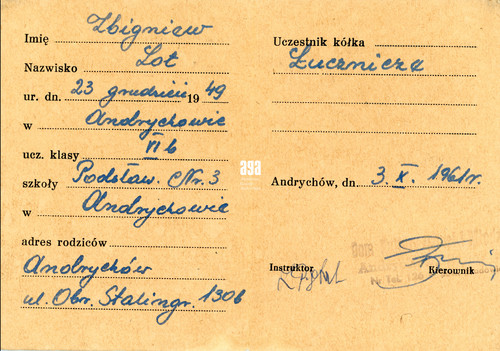 Imię Zbigniew
Nazwisko Lot
ur. dn. 23 grudzień 1949
w Andrychowie
ucz. klasy VI b
szkoły Podstaw. Nr. 3
w Andrychowie
adres rodziców
Andrychów
ul. Obr. Stalingr. 130b
Uczestnik kółka
Łucznicze
Andrychów, dn. 3. X. 1961r.
Instruktor
Kierownik